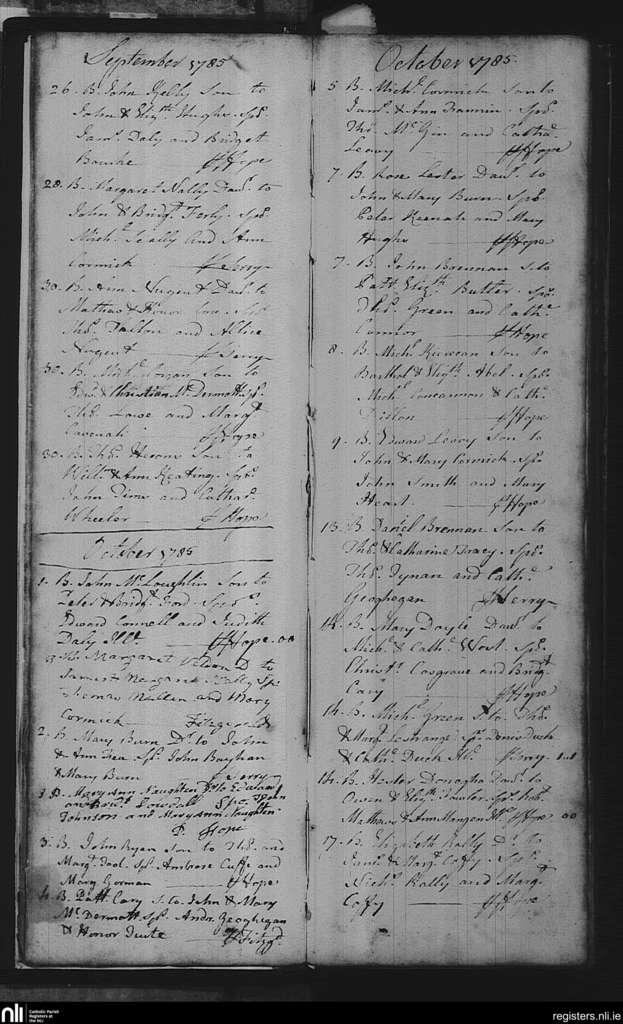 September 1785
26. B. John Kelly Son to
John & Eliz.th Hughs. Sps.
Jam.s Daly and Bridget
Bourke J Hope
28. B. Margaret Nally Dau.r to
John & Bridg.t Sps.
Mich.l Scally and Ann
Cormick
30. B. Ann Nugent Da.r to
Mathias & Honor Sps.
Tho.s Dalton and Alice
Nugent
30. B. Mich.l Son to
Edw.d & Christian M.cDermott Sp.s
Tho.s Lowe and Marg.t
Cavenah
30. B. Tho.s Son to
Will.m & Ann Keating. Sps.
John and Cathar.
Wheeler Hope
October 1785
1. B. John M.cLoughlin Son to
Peter & Bridg.t Ford. Sps.
Edward Connell and Judith
Daly Ill.t Hope. 00
Margaret D. to
James & Margaret Kelly Sps.
Mullen and Mary
Cormick Fitzgerald
2. B. Mary Burn D.r to John
& Ann Sp.s John
& Mary Burn
3. B. Mary Ann Naughten D.r to
Sps. John
Johnson and Mary Ann Naughten
P. Hope
3. B. John Ryan Son to Tho.s and
Marg.t Sp.s Ambrose Cuffe and
Mary Gorman Hope
4. B. Patt Cary S. to John & Mary
M.cDermott Sp.s Andr. Geoghegan
& Honor Tuite Fitzg.d
October 1785
5. B. Mich.l Cormick Son to
Jam.s & Ann Sps.
Tho.s and Cathe.
Leavy Hope
7. B. Rose Lester Dau.r to
John & Mary Burn Sps.
Peter Keenah and Mary
Hughs Hope
7. B. John Brennan S. to
Patt Eliz.th Butler. Sps.
Tho.s Green and Cath.
Connor Hope
8. B. Mich.l Son to
Barthol. & Eliz.th Abel. Sps.
Mich.l Concannon & Cath.
Dillon Hope
9. B. Edward Leavy Son to
John & Mary Cormick. Sps.
John Smith and Mary
Heart Hope
13. B. Daniel Brennan Son to
Tho.s & Catharine Tracy. Sps.
Tho.s Tynan and Cath.
Geoghegan
14. B. Mary Doyle Dau.r to
Mich.l & Cath. West. Sps.
Christ.r Cosgrave and Bridg.t
Cary Hope
14. B. Mich.l Green S. to Tho.s
& Marg.t Lestrange. Sp.s Denis Duck
& Cath. Duck
14. B. Hester Donogha Dau.r to
Owen & Eliz.th Fowler. Sp.s
Mathews & Ann Mangan Hope 00
17. B. Elizabeth Rally D. to
Jam.s & Marg.t Coffy. Sps.
Mich.l Rally and Marg.t
Coffy Hope
nli
Catholic Parish
Registers at
the NLI
registers.nli.ie